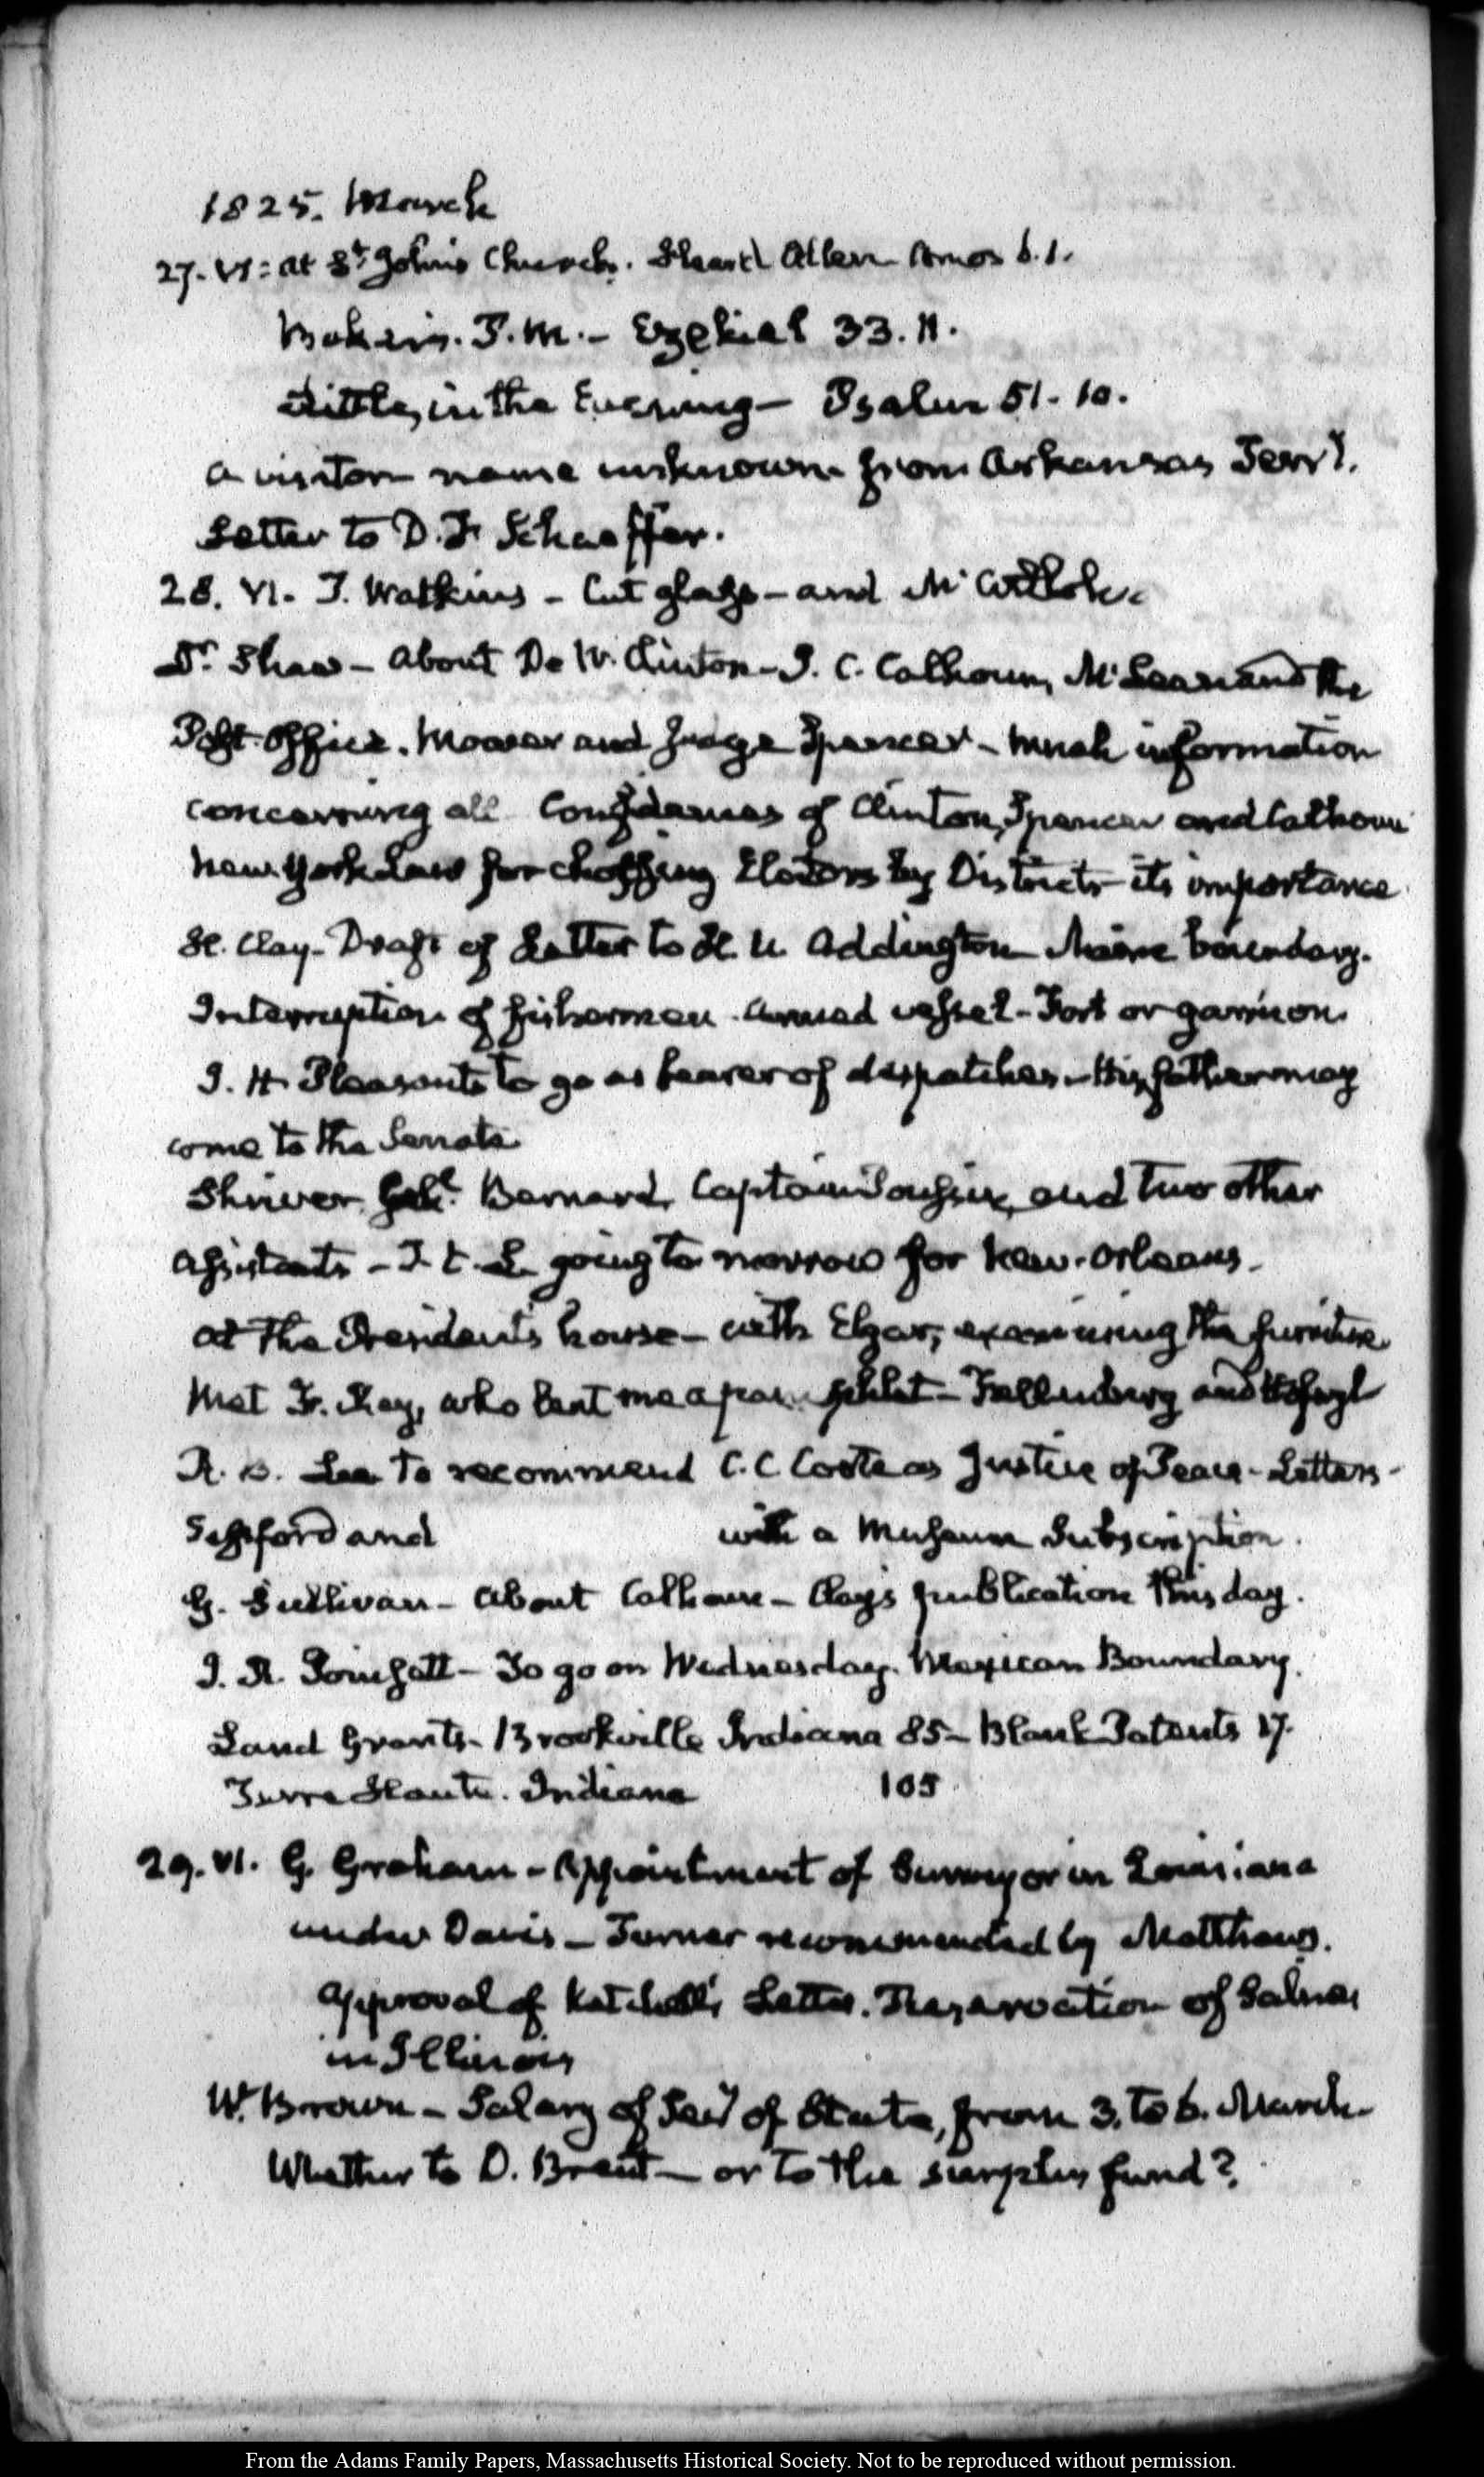 1825. March
27. VI: at St. John's Church. Heard Allen Amos 6.1.
Baker in. P.M. - Ezekiel 33. 11.
Little, in the Evening - Psalm 51. 10.
a visitor name unknown from Arkansas Terry.
Letter to D. F. Schaeffer.
28. VI. T. Watkins - Cut glass - and
Dr. Shaw - About De W. Clinton - J. C. Calhoun, McLean and the
Post-Office. and Judge Spencer - Much information
concerning all of Clinton, Spencer and Calhoun
New York Law for choosing Electors by Districts - its importance
H. Clay - Draft of Letter to H. U. Addington Maine boundary.
Interruption of fishermen. armed vessel - Fort or garrison.
J. H. Pleasants to go as bearer of despatches - His father may
come to the Senate
Shriver Bernard, Captain Poussin, and two other
assistants - J. E. S. going to morrow for New-Orleans.
At the President's house - with Elgar, examining the furniture
Met Fr. Key, who lent me a pamphlet - Fellenberg and Hofwyl
R. B. Lee to recommend C. C. as Justice of Peace - Letters -
Sessford and with a Museum Subscription.
G. Sullivan - About Calhoun - Clay's publication this day.
J. R. Poinsett - To go on Wednesday. Mexican Boundary.
Land Grants - Brookville Indiana 85 - Blank Patents 17.
Terre Haute. Indiana 105
29. VI. G. Graham - Appointment of Surveyor in Louisiana
under Davis - Turner recommended by Matthews.
Approval of Letter. Reservation of Salines
in Illinois
W. Brown - Salary of Secy of State, from 3. to 6. March.
Whether to D. Brent - or to the surplus fund?
From the Adams Family Papers, Massachusetts Historical Society. Not to be reproduced without permission.